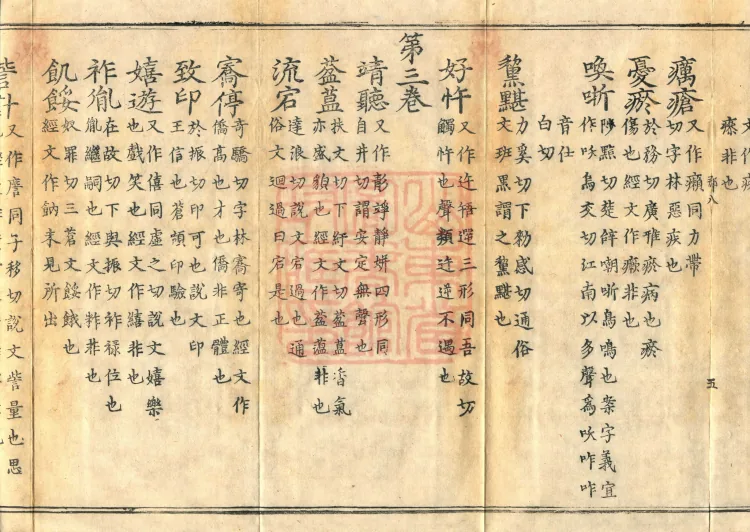 瘵非也
癘瘡 又作癩同力帶
切字林惡疾也
憂瘀 於務切廣雅瘀病也瘀
傷也經文作瘢非也
喚哳 陟黠切楚辭嘲哳鳥鳴也案字義宜
作吺烏交切江南以多聲為吺咋咋
音仕
白切
黧黮 力奚切下勑感切通俗
文班黑謂之黧黮也
好忤 又作迕牾遻三形同吾故切
觸忤也聲類迕逆不遇也
第三卷
靖聽 又作彰竫靜妌四形同
自井切謂安定無聲也
葢蒀 扶文切下紆文切葢蒀香氣
亦盛貌也經文作葢蘊非也
流宕 達浪切說文宕過也通
俗文迴過曰宕是也
寄停 奇驕切字林寄寄也經文作
僑高也才也僑非正體也
致印 於振切印可也說文印
王信也蒼頡印驗也
嬉遊 又作僖同虛之切說文嬉樂
也戲笑也經文作繥非也
祚胤 在故切下與振切祚祿位也
胤繼嗣也經文作䊝非也
飢餒 奴罪切三蒼文餒餓也
經文作鮾未見所出
又作𧩧同子移切說文訾量也思
五